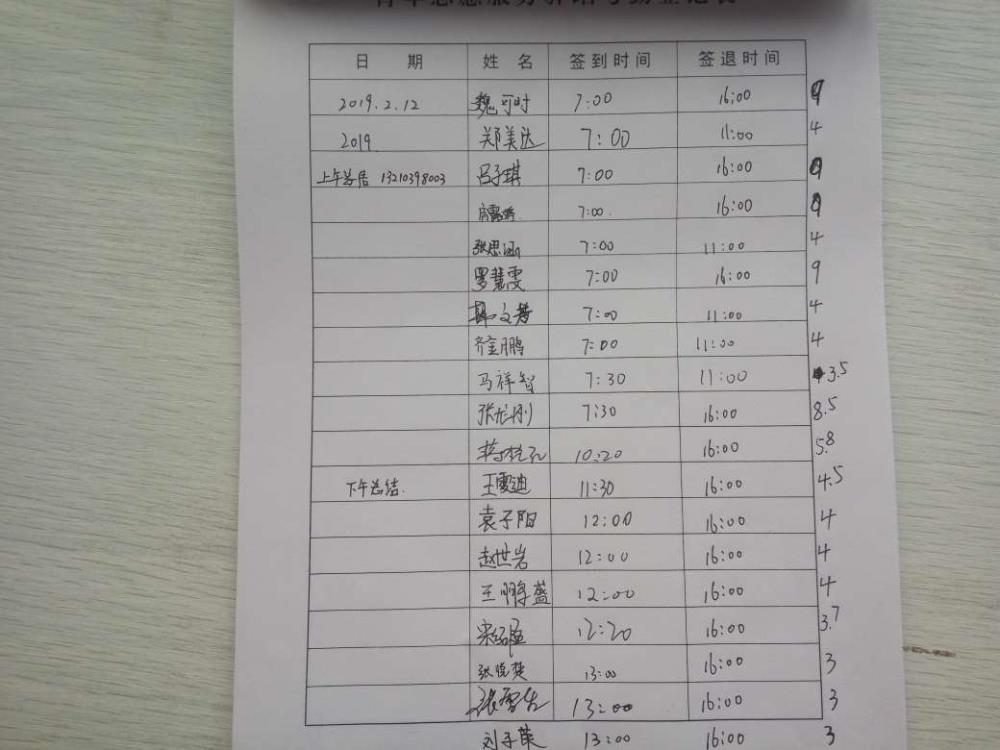 日 期 姓 名 签到时间 签退时间
2019.2.12 魏可时 7:00 16:00 9
2019 郑美达 7:00 11:00 4
上午总结 13210398003 吕子琪 7:00 16:00 9
7:00 16:00 9
张思涵 7:00 11:00 4
罗慧雯 7:00 16:00 9
文 7:00 11:00 4
齐金鹏 7:00 11:00 4
马祥智 7:30 11:00 3.5
张龙刚 7:30 16:00 8.5
10:20 16:00 5.8
下午总结. 王雯迪 11:30 16:00 4.5
袁子阳 12:00 16:00 4
赵世岩 12:00 16:00 4
王鹏 12:00 16:00 4
宋 12:20 16:00 3.7
张 13:00 16:00 3
张雪 13:00 16:00 3
刘子荣 13:00 16:00 3